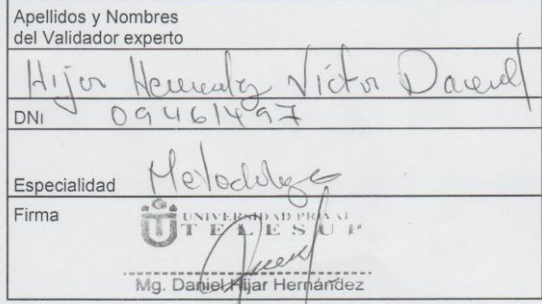 Apellidos y Nombres
del Validador experto
Hijar Hernandez Víctor Daniel
DNI 09461497
Especialidad Metodologo
Firma
UNIVERSIDAD PRIVADA
TELESUP
Mg. Daniel Hijar Hernández